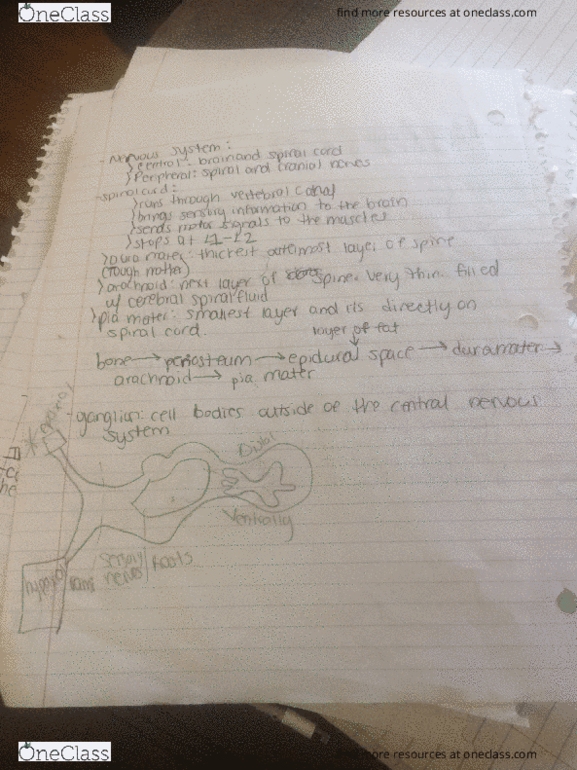 OneClass
find more resources at oneclass.com
- nervous system:
> central: brain and spiral cord
> Peripheral: spiral and cranial nerves
- spiral cord:
> runs through vertebral canal
> brings sensory information to the brain
> sends motor signals to the muscles
> stops at L1-L2
> Dura mater: thickest outermost layer of spine
(Tough matter)
> arachnoid: next layer of spine. very thin. filled
w/ cerebral spiral fluid
> pia mater: smallest layer and is directly on
spiral cord.
layer of fat
bone → periosteum → epidural space → duramater →
arachnoid → pia mater
- ganglian: cell bodies outside of the central nervous
system
Ventrally
sensory
nerves
roots
rami
OneClass
find more resources at oneclass.com